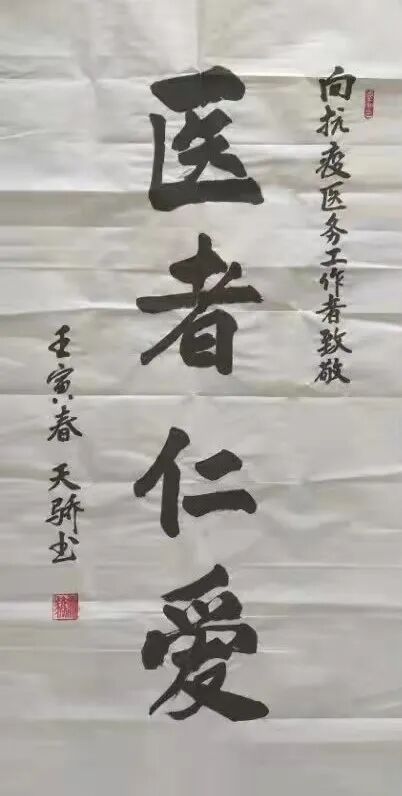 向抗疫医务工作者致敬
医者仁爱
壬寅春 天骄书